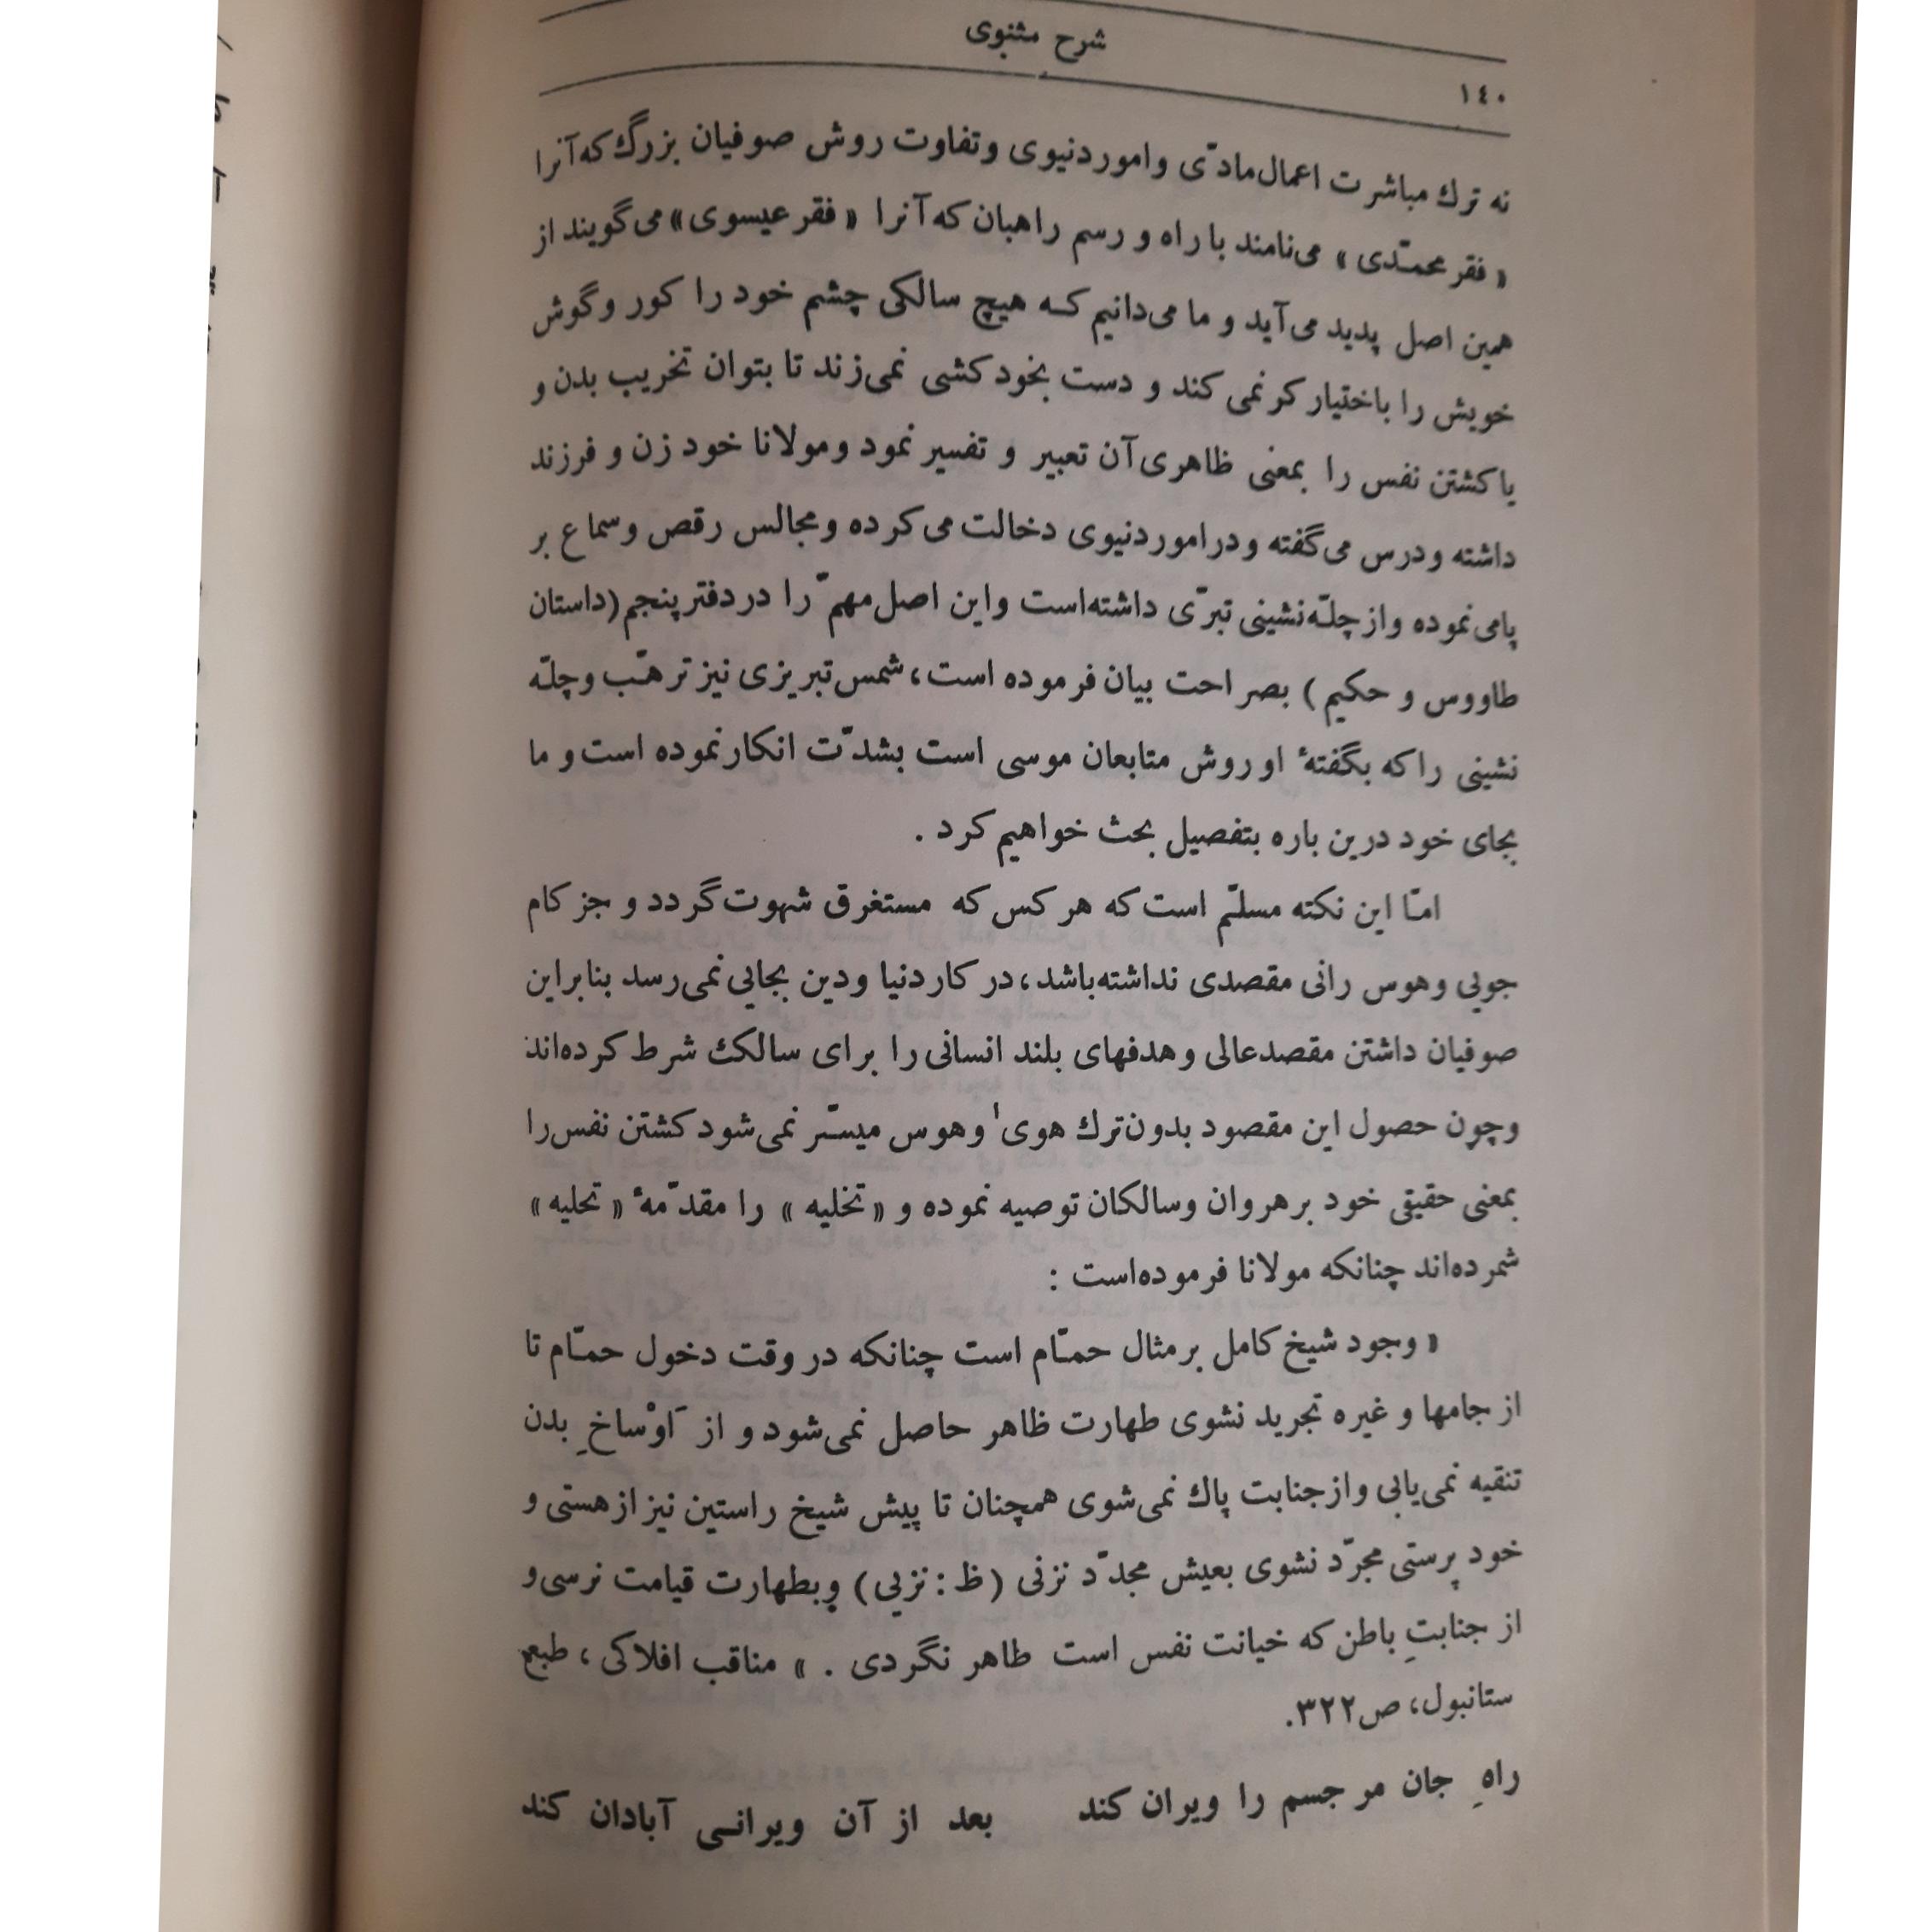 شرح مثنوی
۱۴۰
نه ترك مباشرت اعمال مادّی و امور دنیوی و تفاوت روش صوفیان بزرگ که آنرا
« فقر محمّدی » می‌نامند با راه و رسم راهبان که آنرا « فقر عیسوی » می‌گویند از
همین اصل پدید می‌آید و ما می‌دانیم که هیچ سالکی چشم خود را کور و گوش
خویش را باختیار کر نمی‌کند و دست بخودکشی نمی‌زند تا بتوان تخریب بدن و
یا کشتن نفس را بمعنی ظاهری آن تعبیر و تفسیر نمود و مولانا خود زن و فرزند
داشته و درس می‌گفته و در امور دنیوی دخالت می‌کرده و مجالس رقص و سماع بر
پا می‌نموده و از چلّه‌نشینی تبرّی داشته‌است و این اصل مهمّ را در دفتر پنجم (داستان
طاووس و حکیم ) بصراحت بیان فرموده است، شمس تبریزی نیز ترهّب و چلّه
نشینی را که بگفتهٔ او روش متابعان موسی است بشدّت انکار نموده است و ما
بجای خود درین باره بتفصیل بحث خواهیم کرد .
امّا این نکته مسلّم است که هر کس که مستغرق شهوت گردد و جز کام
جویی و هوس رانی مقصدی نداشته‌باشد، در کار دنیا و دین بجایی نمی‌رسد بنابراین
صوفیان داشتن مقصد عالی و هدفهای بلند انسانی را برای سالک شرط کرده‌اند
و چون حصول این مقصود بدون ترك هویٰ و هوس میسّر نمی‌شود کشتن نفس را
بمعنی حقیقی خود برهروان و سالکان توصیه نموده و « تخلیه » را مقدّمهٔ « تحلیه »
شمرده‌اند چنانکه مولانا فرموده‌است :
« وجود شیخ کامل بر مثال حمّام است چنانکه در وقت دخول حمّام تا
از جامها و غیره تجرید نشوی طهارت ظاهر حاصل نمی‌شود و از اَوْساخِ بدن
تنقیه نمی‌یابی و از جنابت پاك نمی‌شوی همچنان تا پیش شیخ راستین نیز از هستی و
خود پرستی مجرّد نشوی بعیش مجدّد نزفی (ظ : نزیی) و بطهارت قیامت نرسی و
از جنابتِ باطن که خیانت نفس است طاهر نگردی . » مناقب افلاکی ، طبع
ستانبول، ص۳۲۲.
راهِ جان مر جسم را ویران کند بعد از آن ویرانی آبادان کند